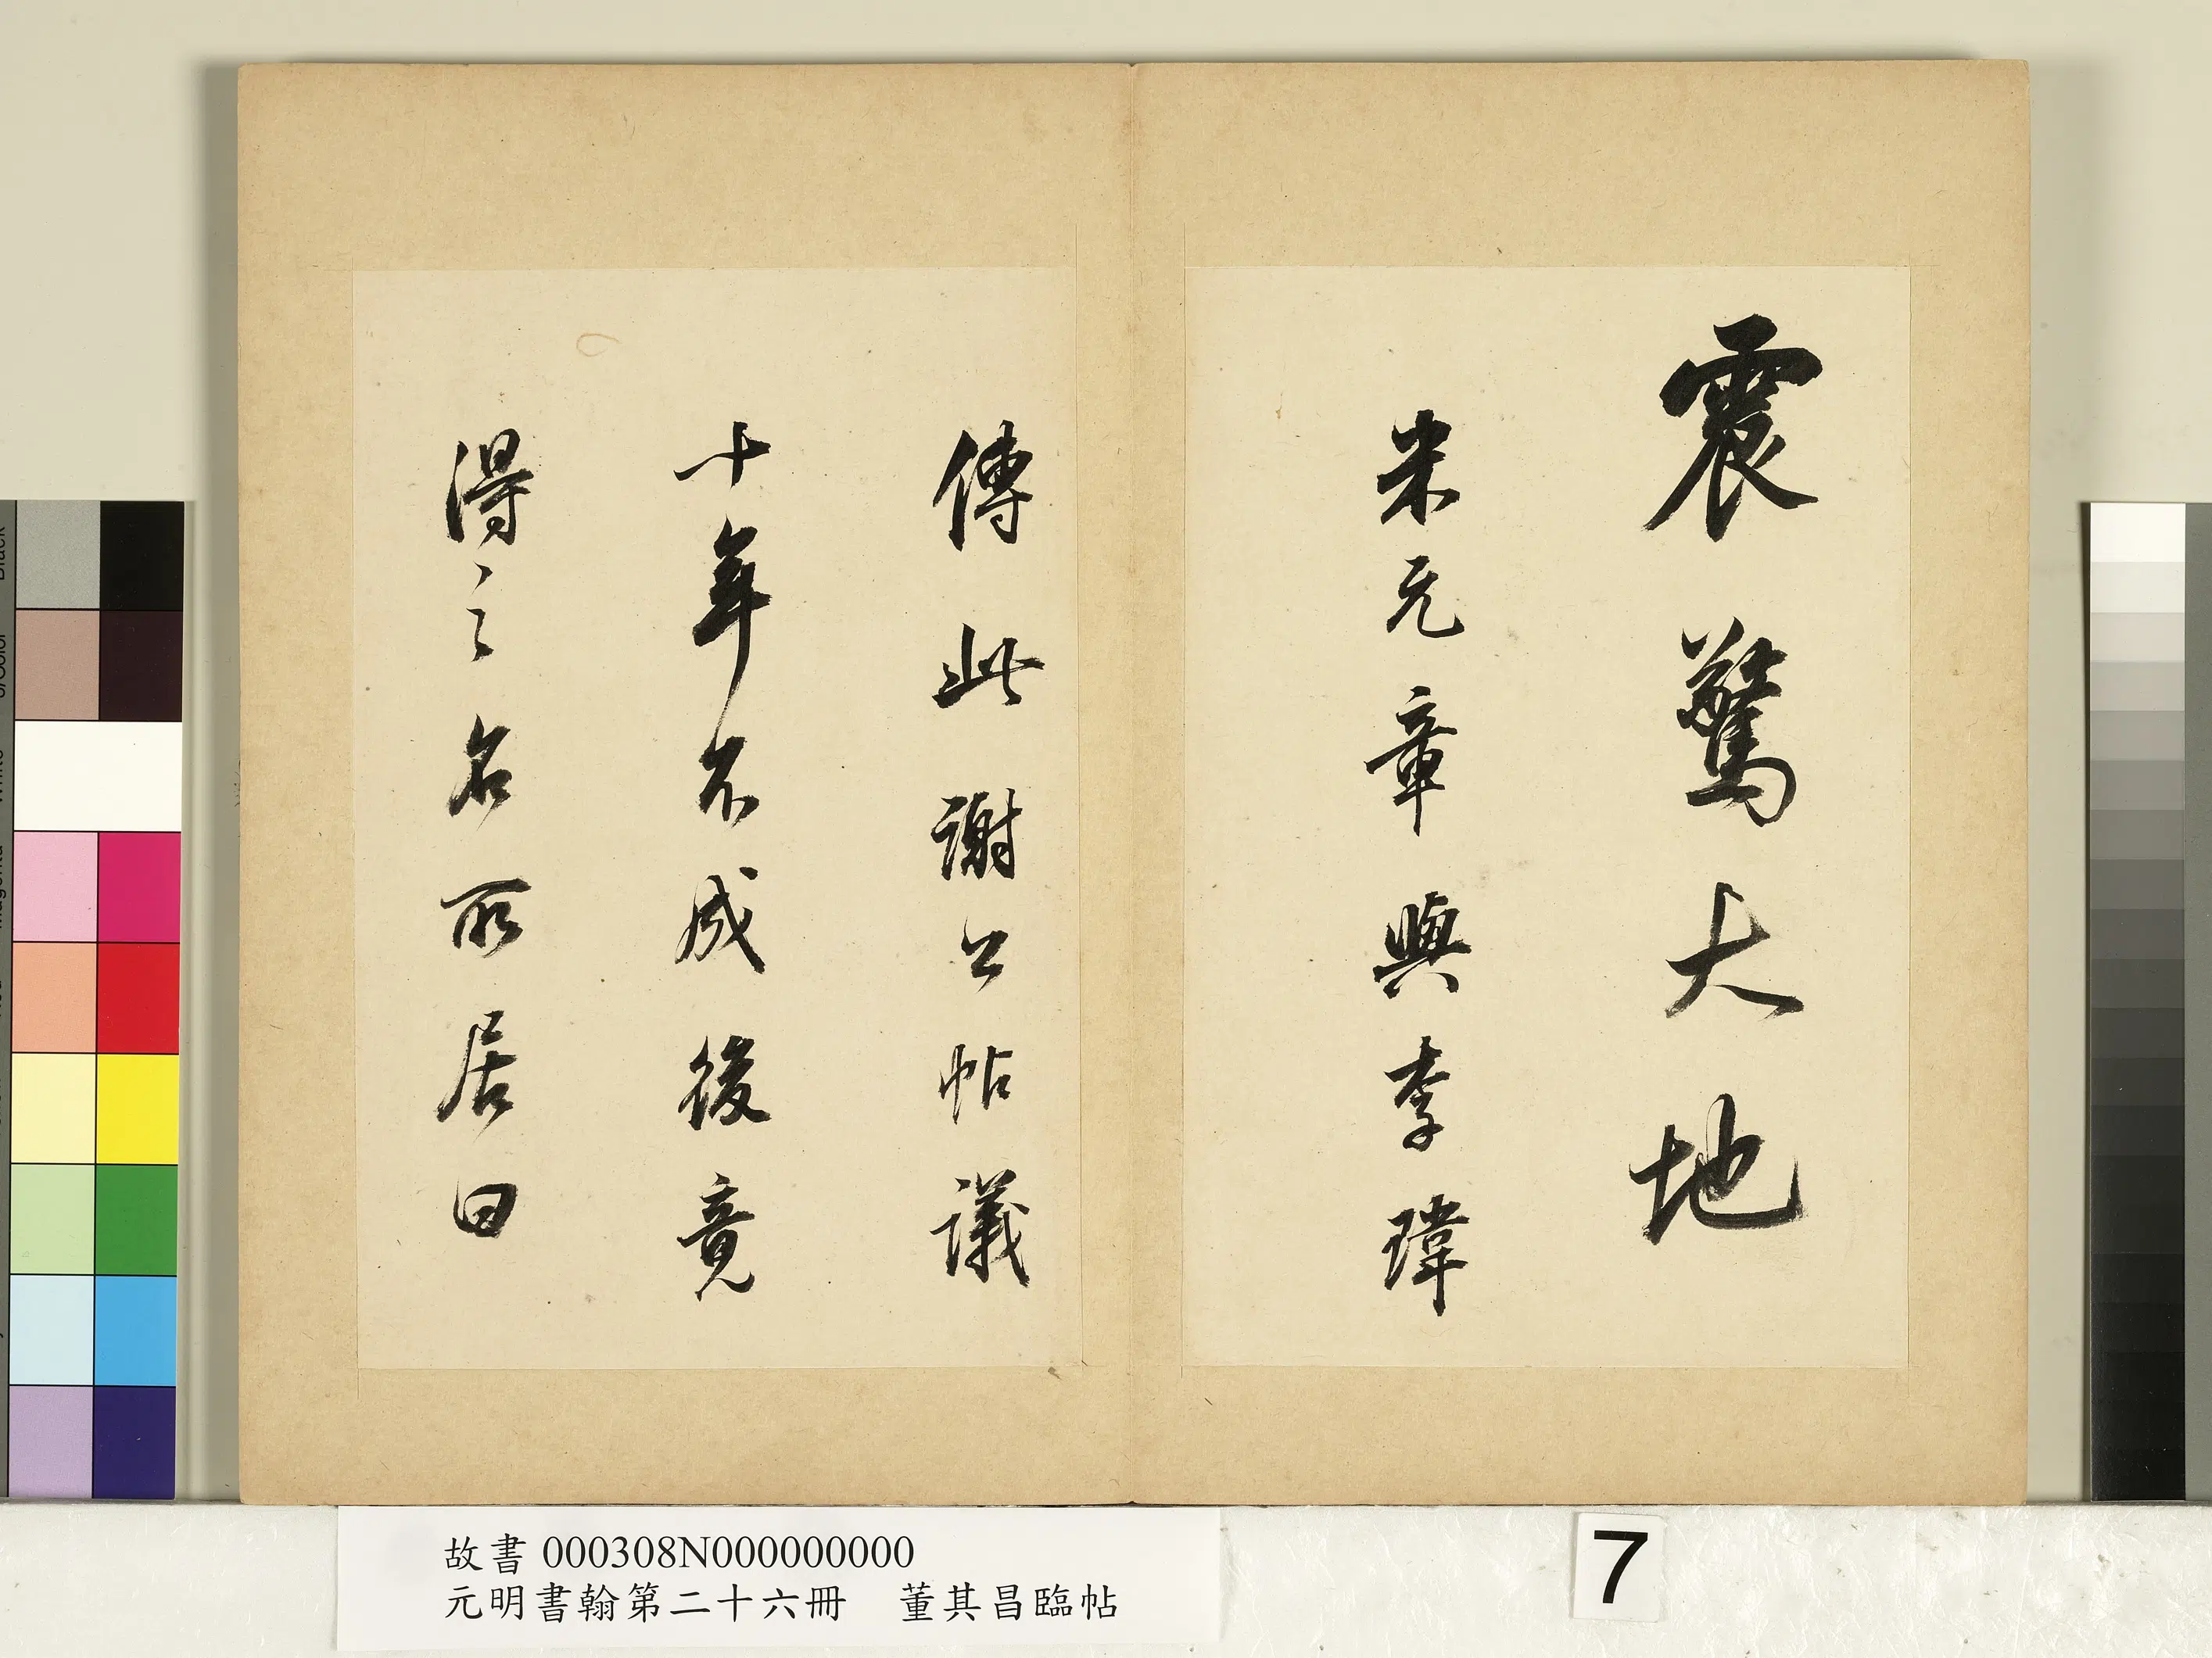 震驚大地
米元章與李瑋
傳此謝公帖議
十年不成後竟
得之名所居曰
故書 000308N000000000
元明書翰第二十六冊 董其昌臨帖
7